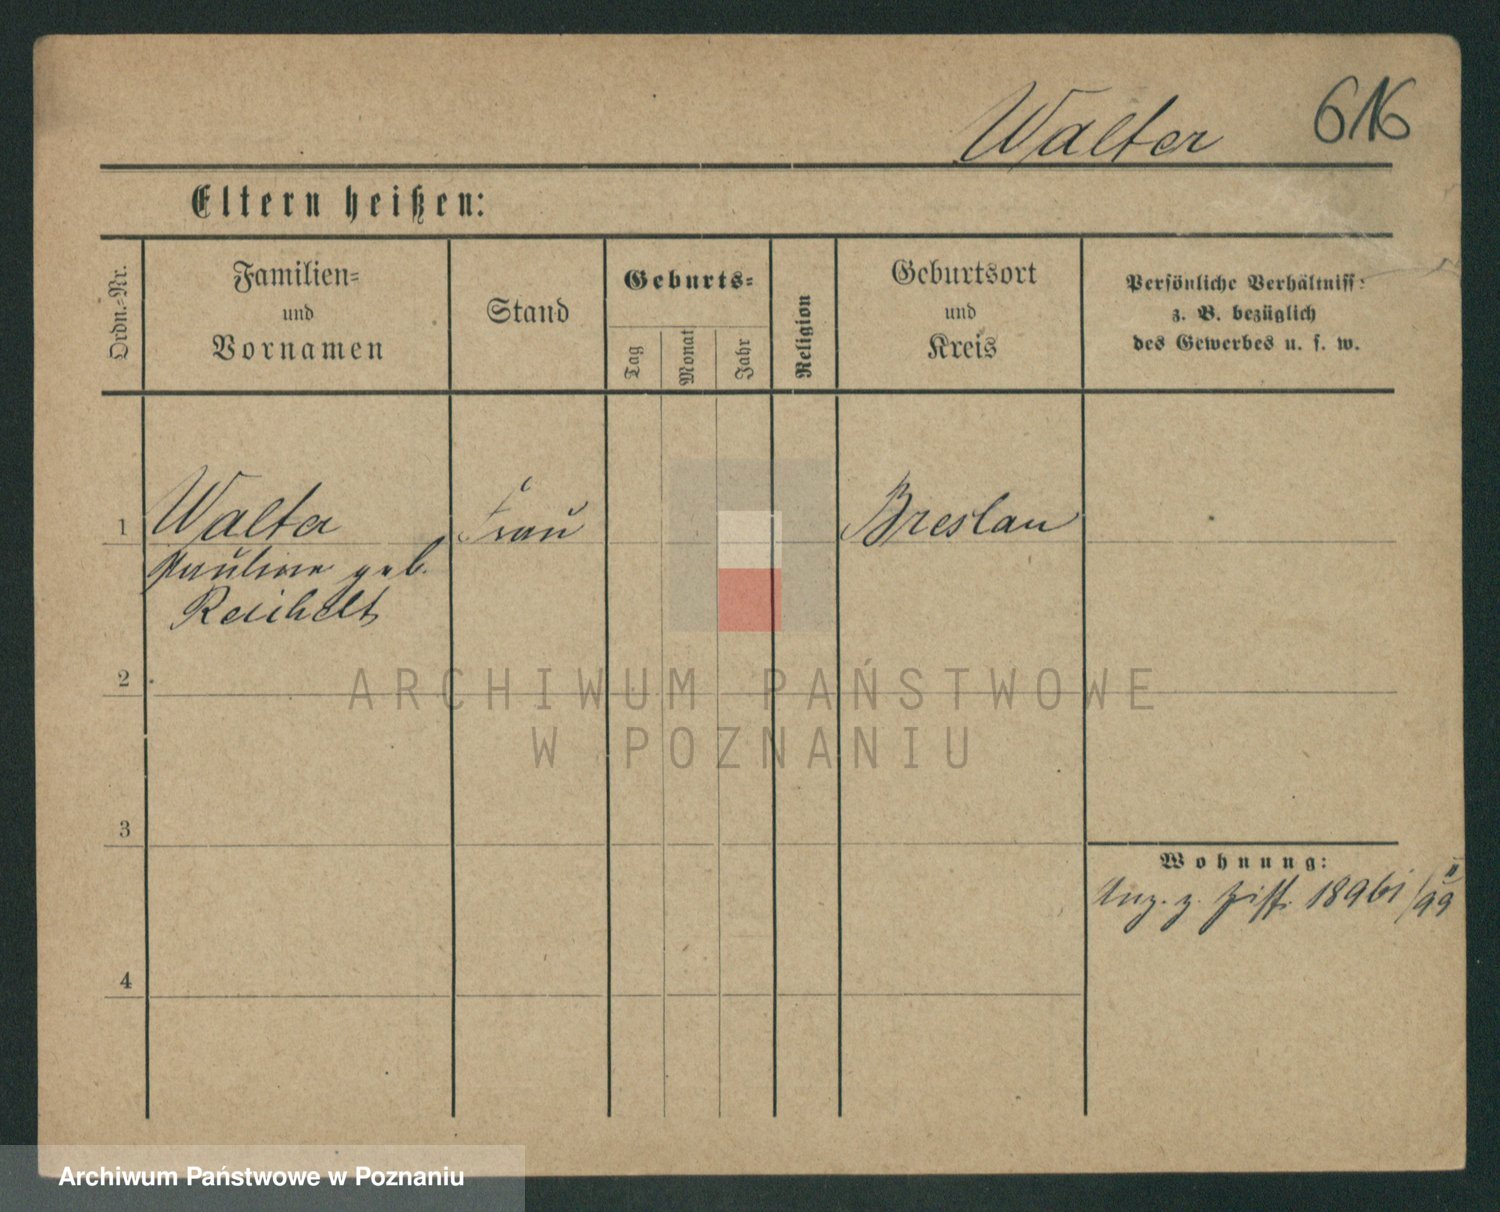 Walter 616
Eltern heißen:
Ordn.-Nr.
Familien-
und
Vornamen
Stand
Geburts-
Tag
Monat
Jahr
Religion
Geburtsort
und
Kreis
Persönliche Verhältniss:
z. B. bezüglich
des Gewerbes u. s. w.
1 Walter Frau Breslau
Pauline geb.
Reichelt
2
ARCHIWUM PAŃSTWOWE
W POZNANIU
3
Wohnung:
Anz. z. Ziff. 18961 II/99
4
Archiwum Państwowe w Poznaniu